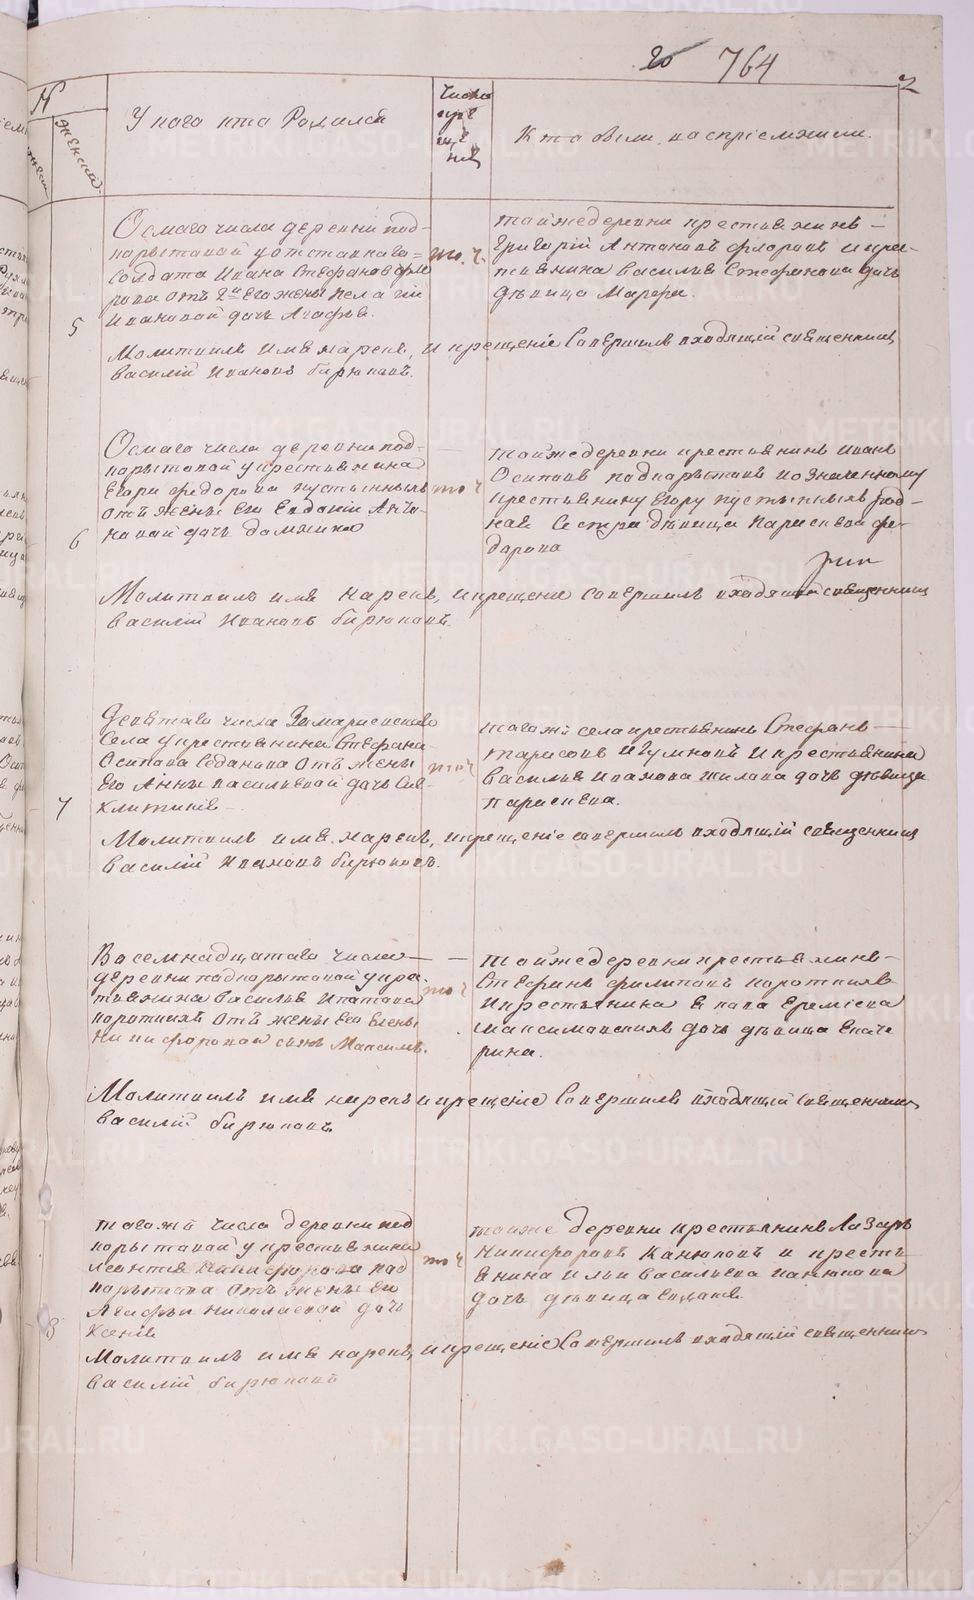 764
2
№
женска
У кого кто Родился
Число крещения
Кто были воспрiемники.
Осмаго числа деревни под-
корытовой у отставнаго
Солдата Ивана Стефанова Фло
рова отъ 2й Его жены Пелагiи
Ивановой дочь Агафья.
то. ч.
тойже деревни крестьянинъ
Григорiй Антоновъ Флоровъ и кре-
стьянина Василья Стефанова дочь
дѣвица Марфа.
5
Молитвилъ имя нарекъ, и крещенiе совершилъ входящiй священникъ
Василiй Ивановъ Бирюковъ.
Осмаго числа деревни под-
корытовой у крестьянина
Егора Федорова Пустынныхъ
отъ жены Его Евдокiи Анто-
новой дочь Домника
то ч
тойже деревни крестьянинъ Иванъ
Осиповъ Подкорытовъ и означенному
крестьянину Егору Пустынныхъ род-
ная Сестра дѣвица Параскева Фе-
дорова
6
Молитвилъ имя нарекъ, и крещенiе совершилъ входящiй священникъ
Василiй Ивановъ Бирюковъ.
Девятаго числа
Села у крестьянина Стефана
Осипова отъ жены
Его Анны Васильевой дочь Син-
клитикiя
то ч
тогожъ села крестьянинъ Стефанъ
Тарасовъ Игумновъ и крестьянина
Василья Иванова Шилова дочь дѣвица
Параскева.
7
Молитвилъ имя нарекъ, и крещенiе совершилъ входящiй священникъ
Василiй Ивановъ Бирюковъ.
Восемнадцатаго числа
деревни подкорытовой у кре-
стьянина Василья Ипатова
Короткихъ отъ жены Его Елены
Никифоровой сынъ Максимъ.
то ч
тойже деревни крестьянинъ
Стефанъ Филиповъ Короткихъ
и крестьянина Еремiева
дочь дѣвица Екате
рина.
Молитвилъ имя нарекъ и крещенiе совершилъ входящiй священникъ
Василiй Бирюковъ
тогожъ числа деревни под
корытовой у крестьянина
Леонтья Никифорова Под
корытова отъ жены Его
Агафьи Николаевой дочь
Ксенiя
то ч
тойже деревни крестьянинъ Лазарь
Никифоровъ Канюковъ и кресть
янина Ильи Васильева Канюкова
дочь дѣвица Евдокiя.
8
Молитвилъ имя нарекъ, и крещенiе совершилъ входящiй священникъ
Василiй Бирюковъ